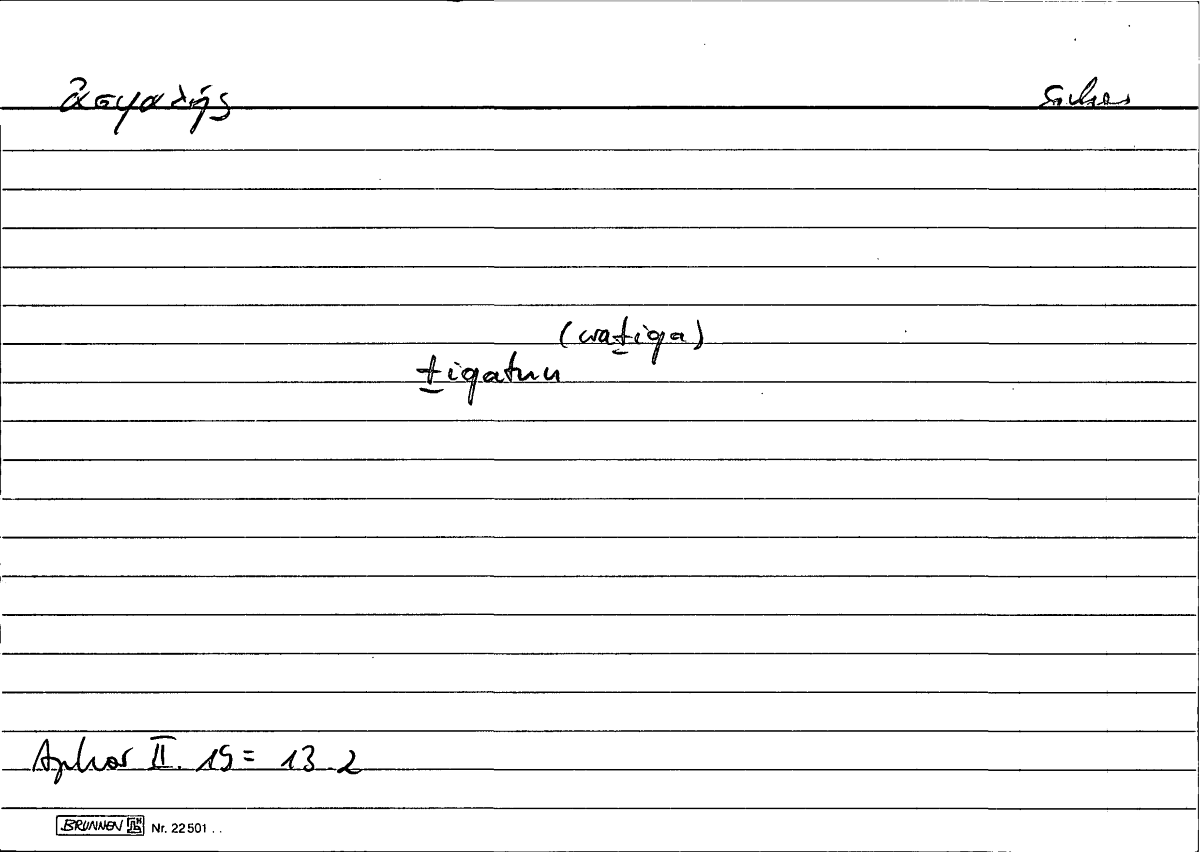 ἀσφαλής sicher
(waṯiqa)
ṯiqatun
Aphor II. 19 = 13.2
BRUNNEN Nr. 22 501 . .